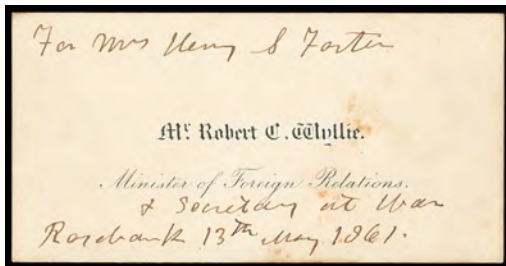 For Mrs Henry S Foster
Mr. Robert C. Wyllie.
Minister of Foreign Relations.
& Secretary at War
Rosebank 13th May 1861.